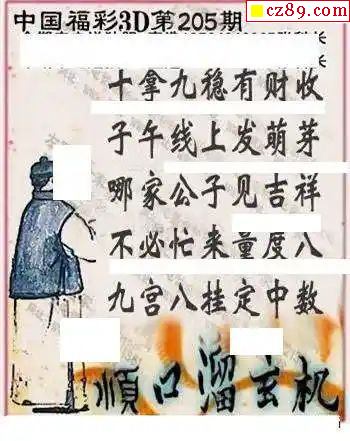 cz89.com
中国福彩3D第205期
十拿九稳有财收
子午线上发萌芽
哪家公子见吉祥
不必忙来量度八
九宫八挂定中数
順口溜玄机